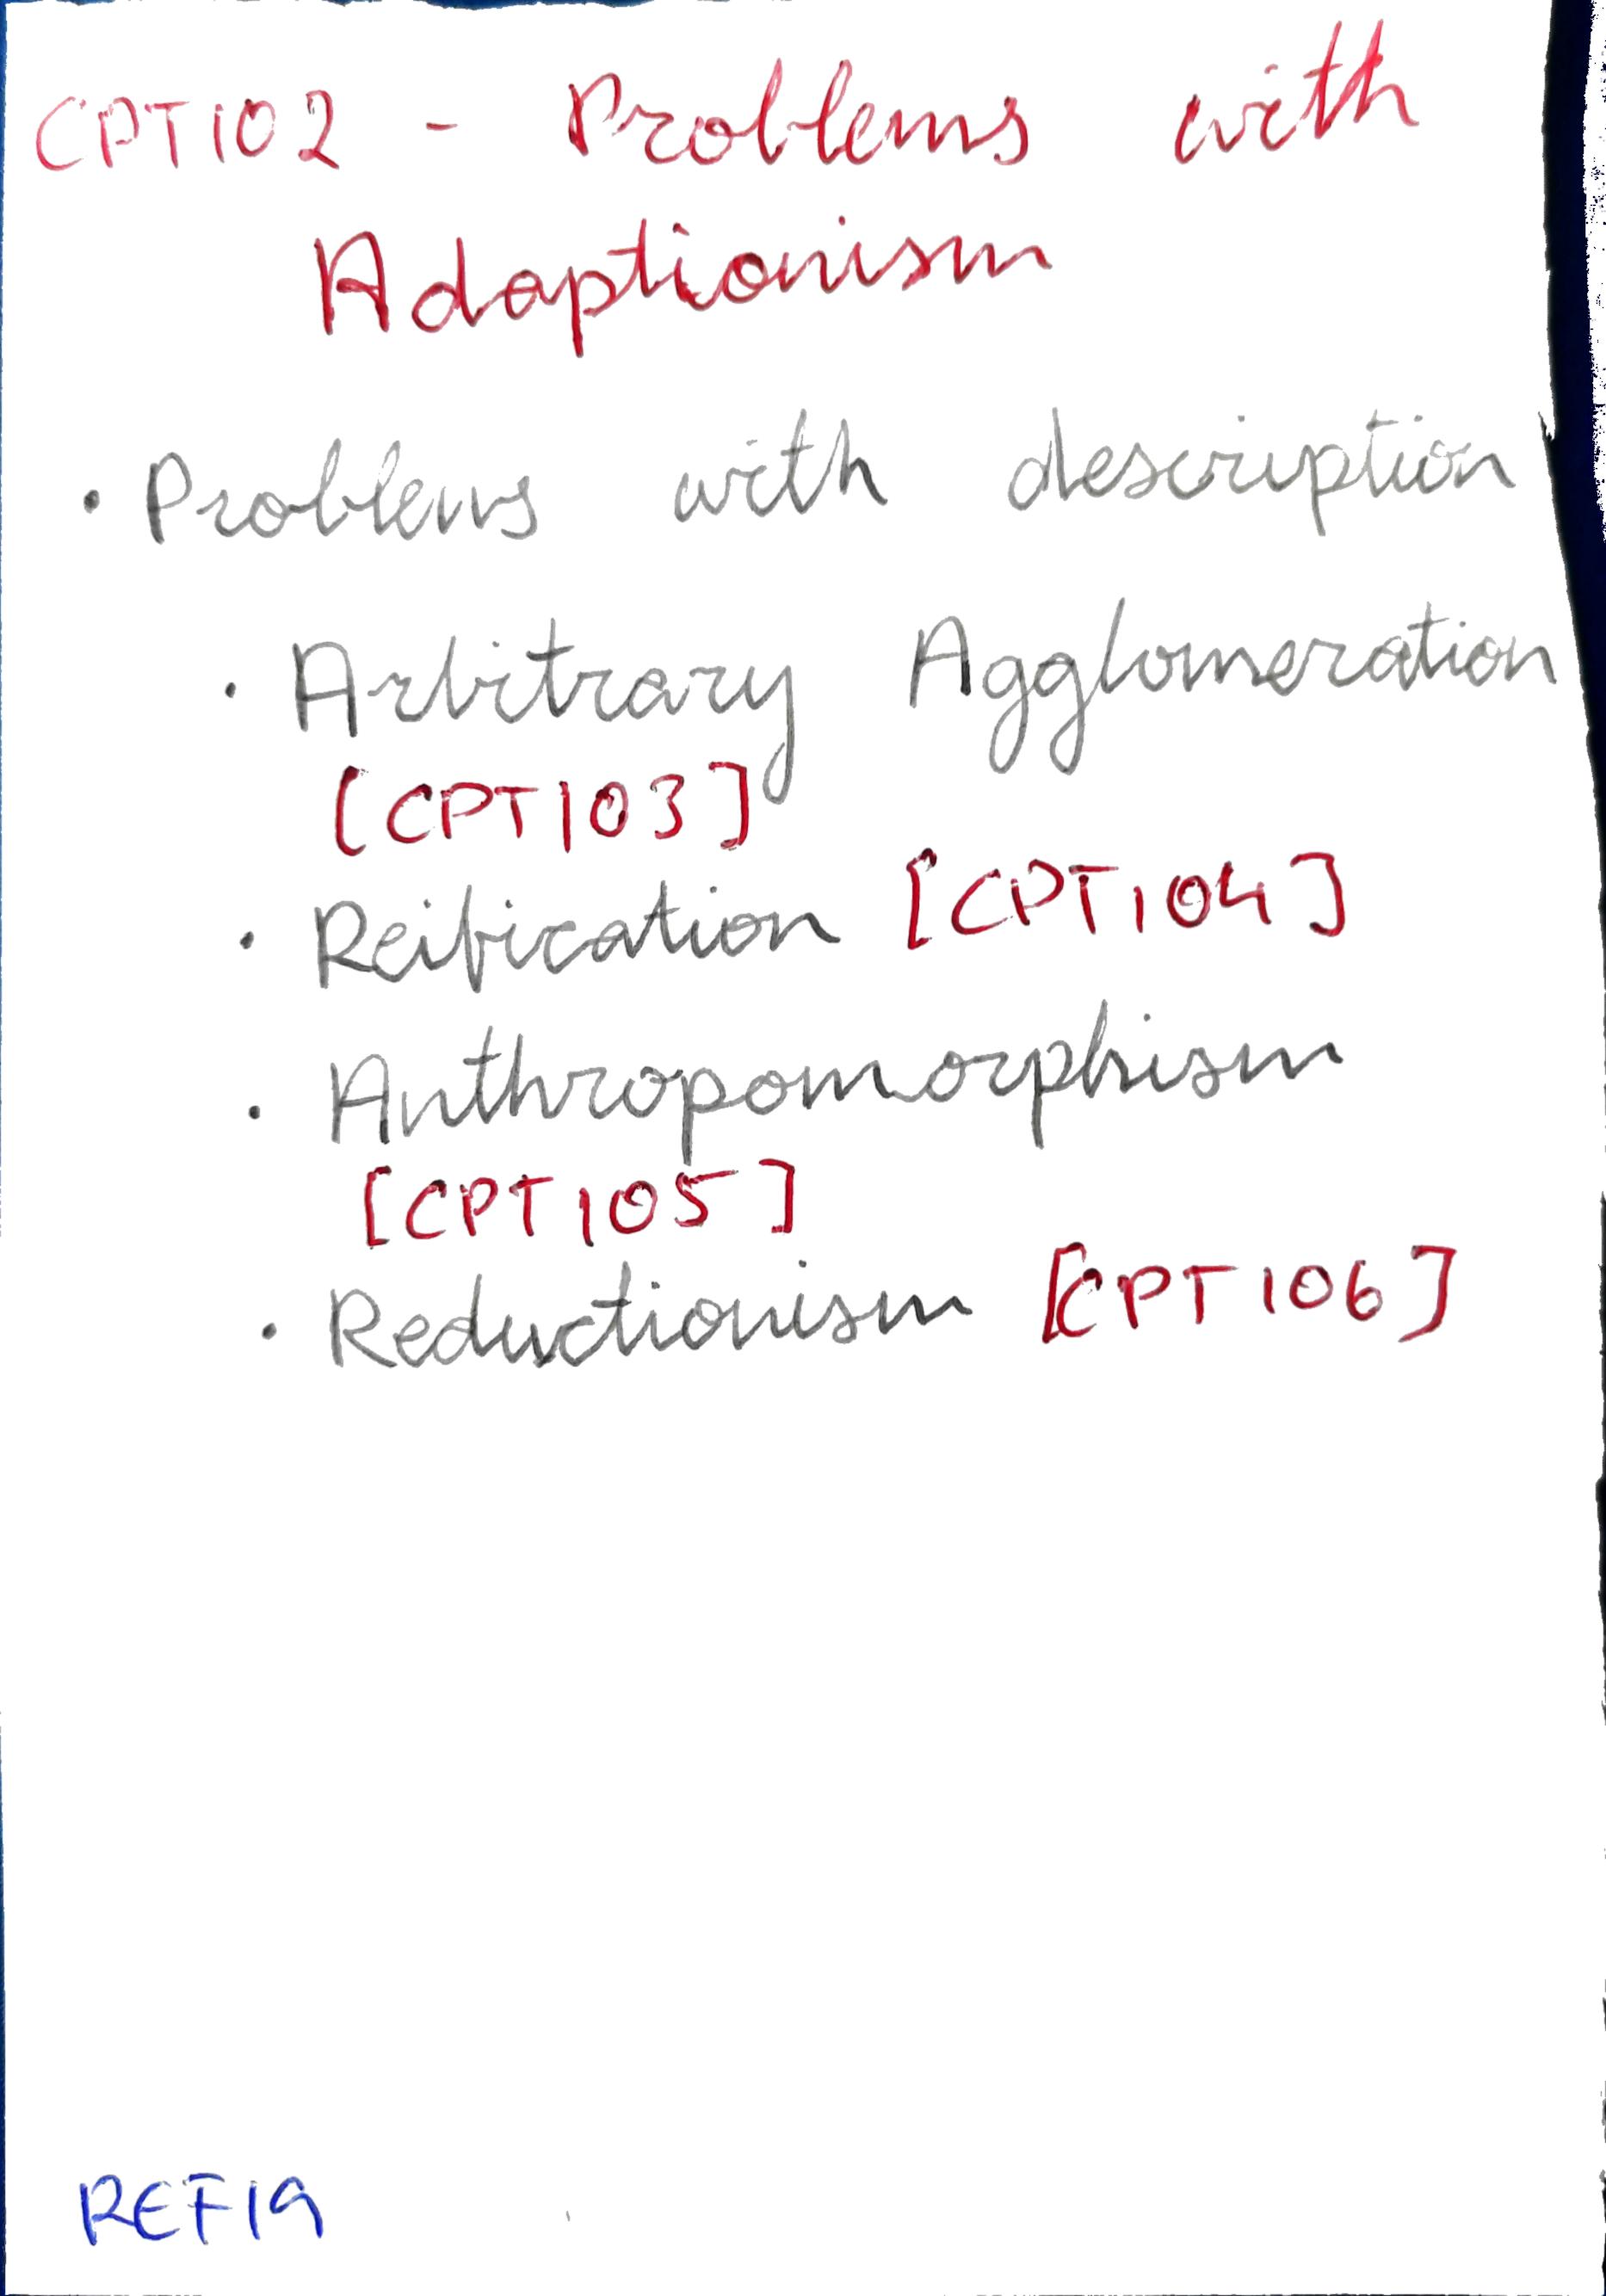 CPT102 - Problems with
Adaptionism
• Problems with description
• Arbitrary Agglomeration
[CPT103]
• Reification [CPT104]
• Anthropomorphism
[CPT105]
• Reductionism [CPT106]
REF19